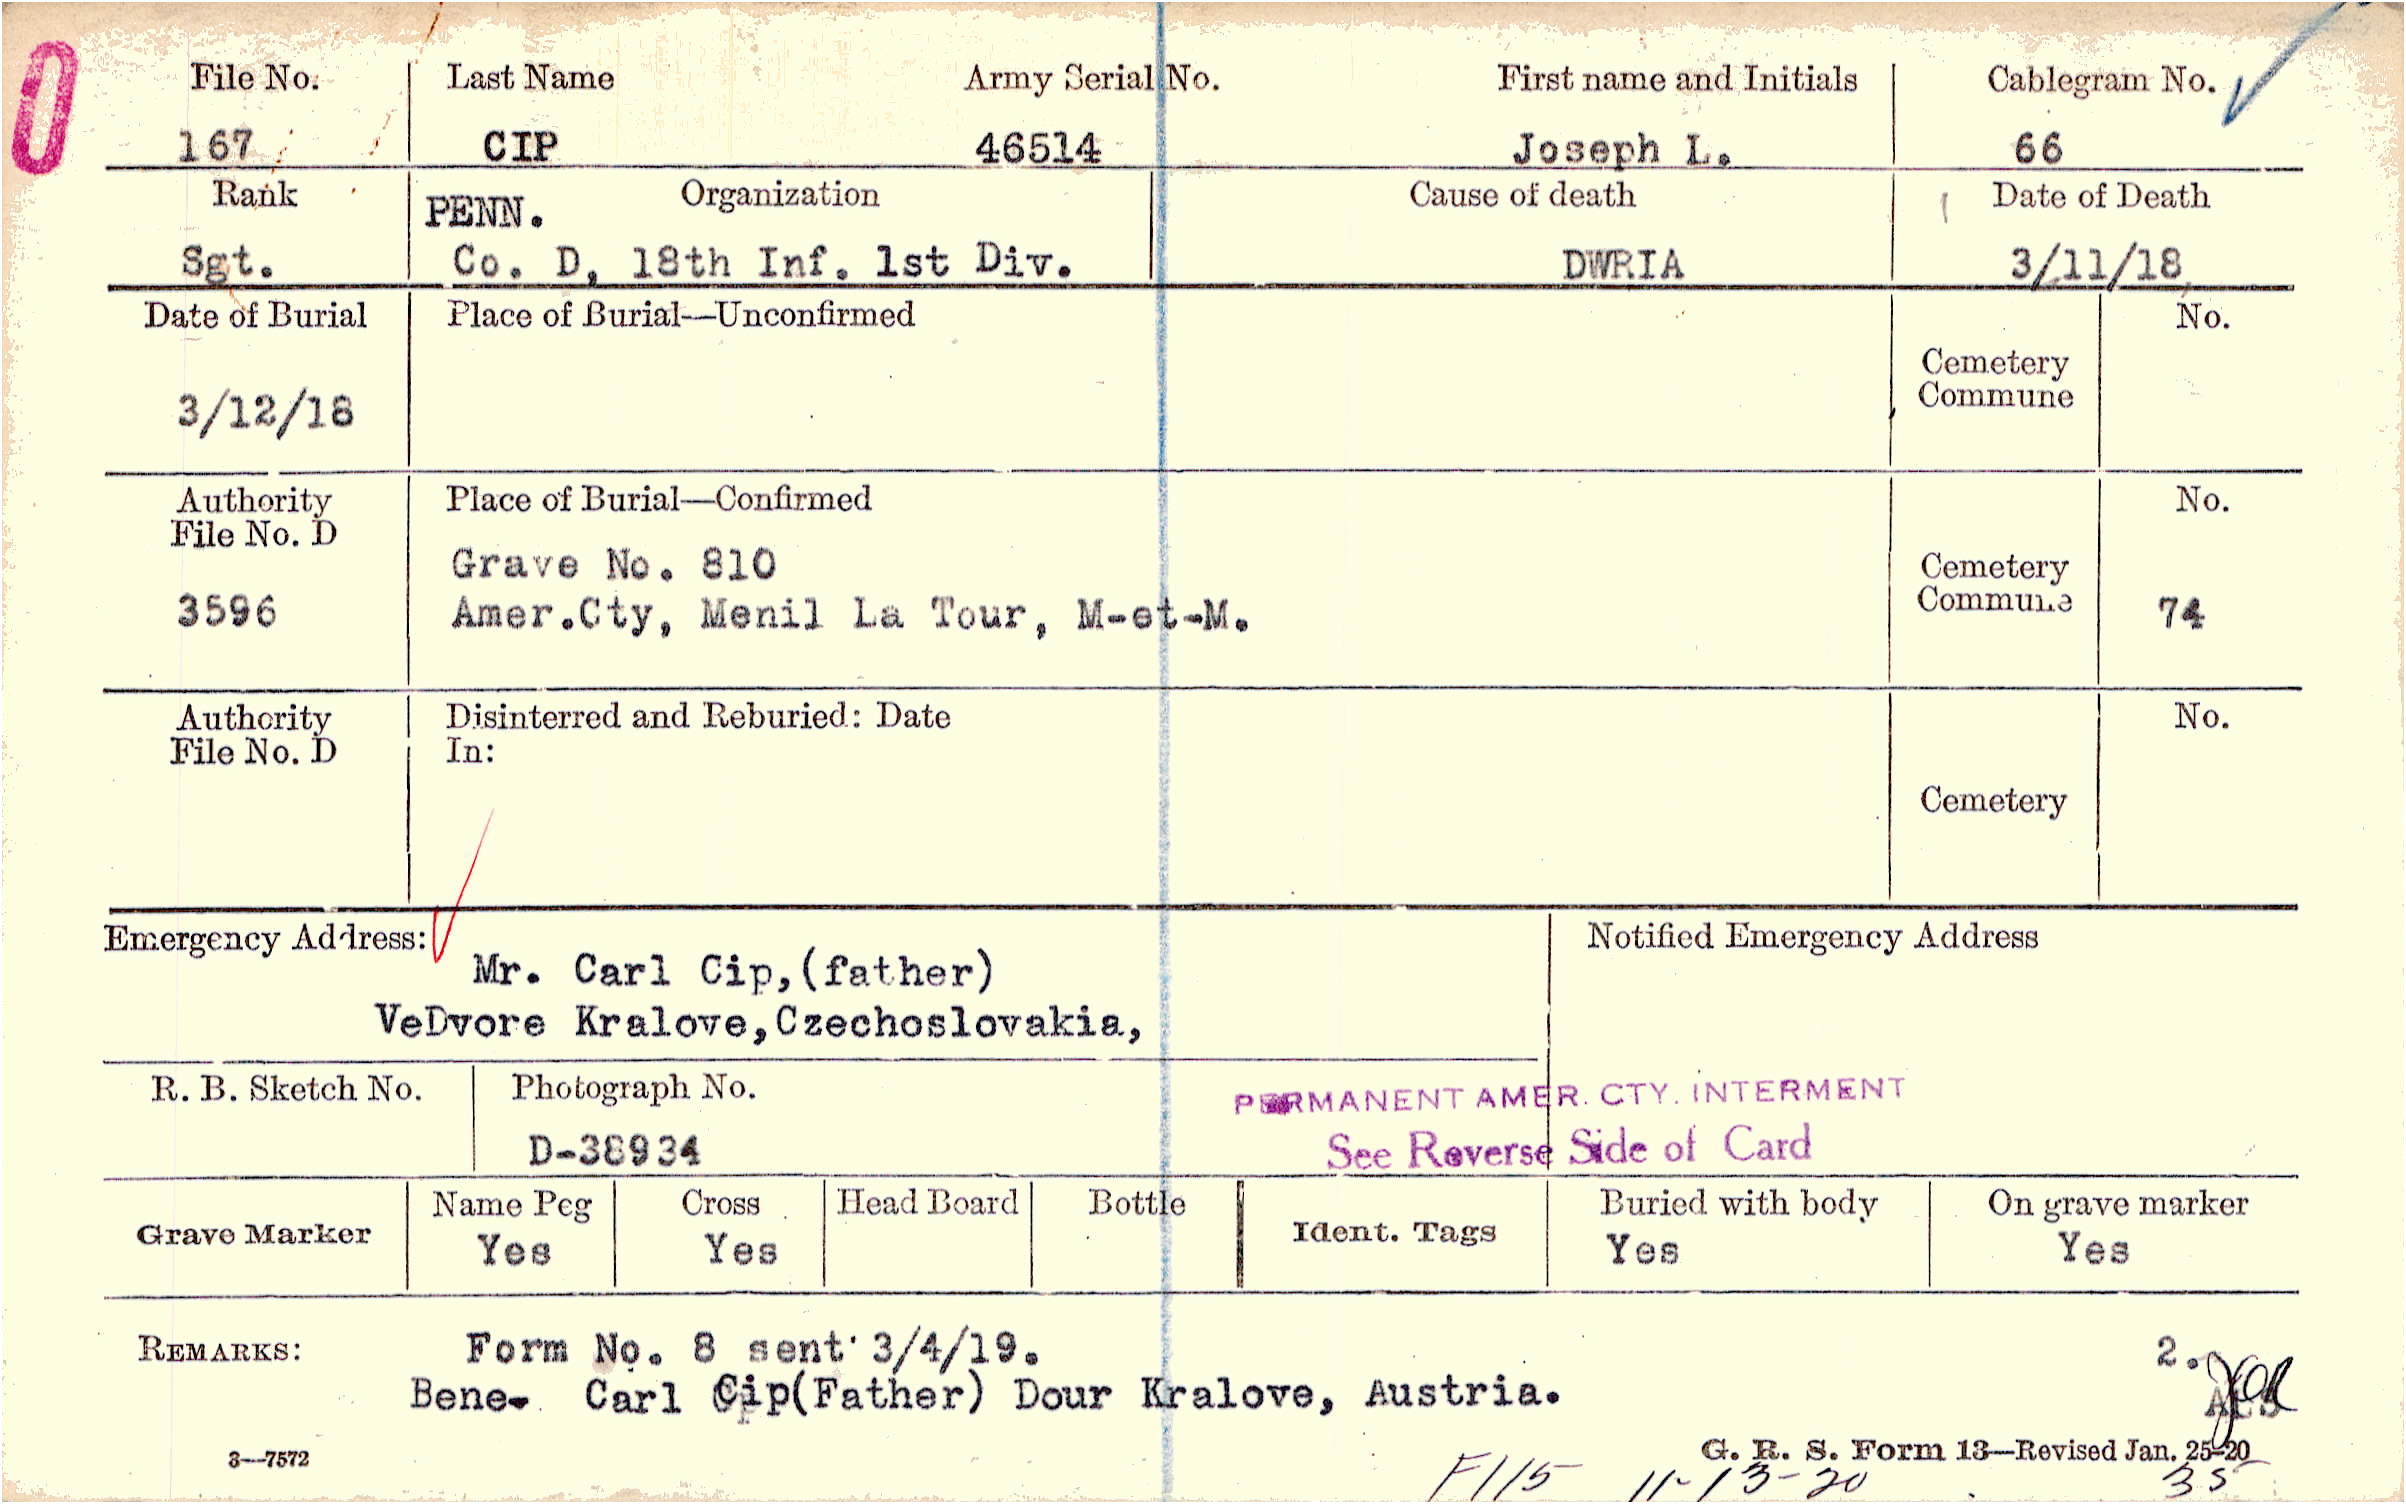 File No. Last Name Army Serial No. First name and Initials Cablegram No.
167 CIP 46514 Joseph L. 66
Rank PENN. Organization Cause of death Date of Death
Sgt. Co. D, 18th Inf. 1st Div. DWRIA 3/11/18
Date of Burial Place of Burial—Unconfirmed No.
Cemetery
Commune
3/12/18
Authority Place of Burial—Confirmed No.
File No. D
Grave No. 810 Cemetery
Commune
3596 Amer.Cty, Menil La Tour, M-et-M. 74
Authority Disinterred and Reburied: Date No.
File No. D In:
Cemetery
Emergency Address: Notified Emergency Address
Mr. Carl Cip,(father)
VeDvore Kralove,Czechoslovakia,
R. B. Sketch No. Photograph No. PERMANENT AMER. CTY. INTERMENT
D-38934 See Reverse Side of Card
Grave Marker Name Peg Cross Head Board Bottle Ident. Tags Buried with body On grave marker
Yes Yes Yes Yes
REMARKS: Form No. 8 sent 3/4/19. 2.
Bene- Carl Cip(Father) Dour Kralove, Austria.
3—7572 G. R. S. Form 13—Revised Jan. 25-20
F115 11-13-20 35